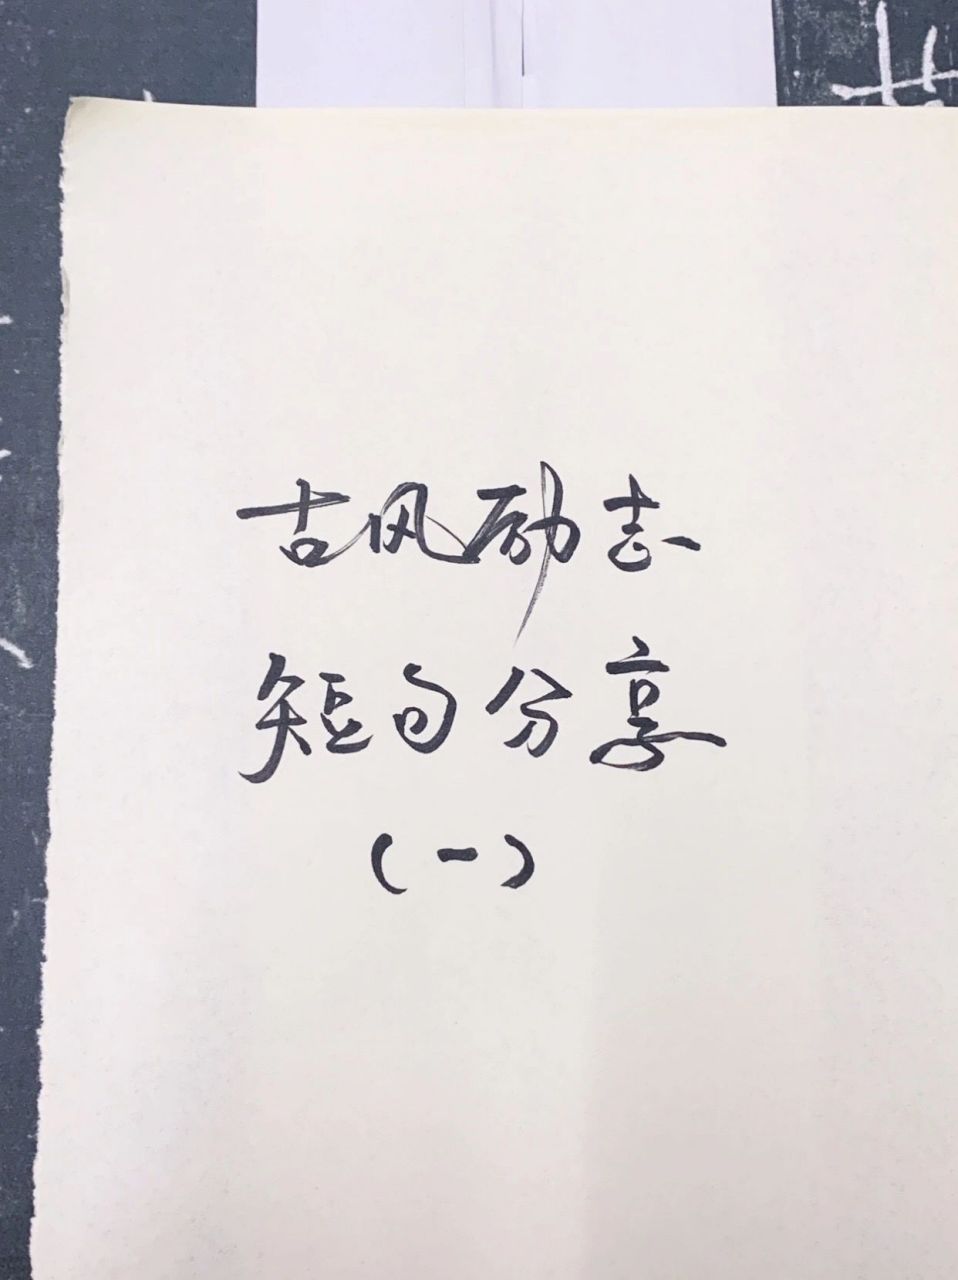 古风励志
短句分享
（一）